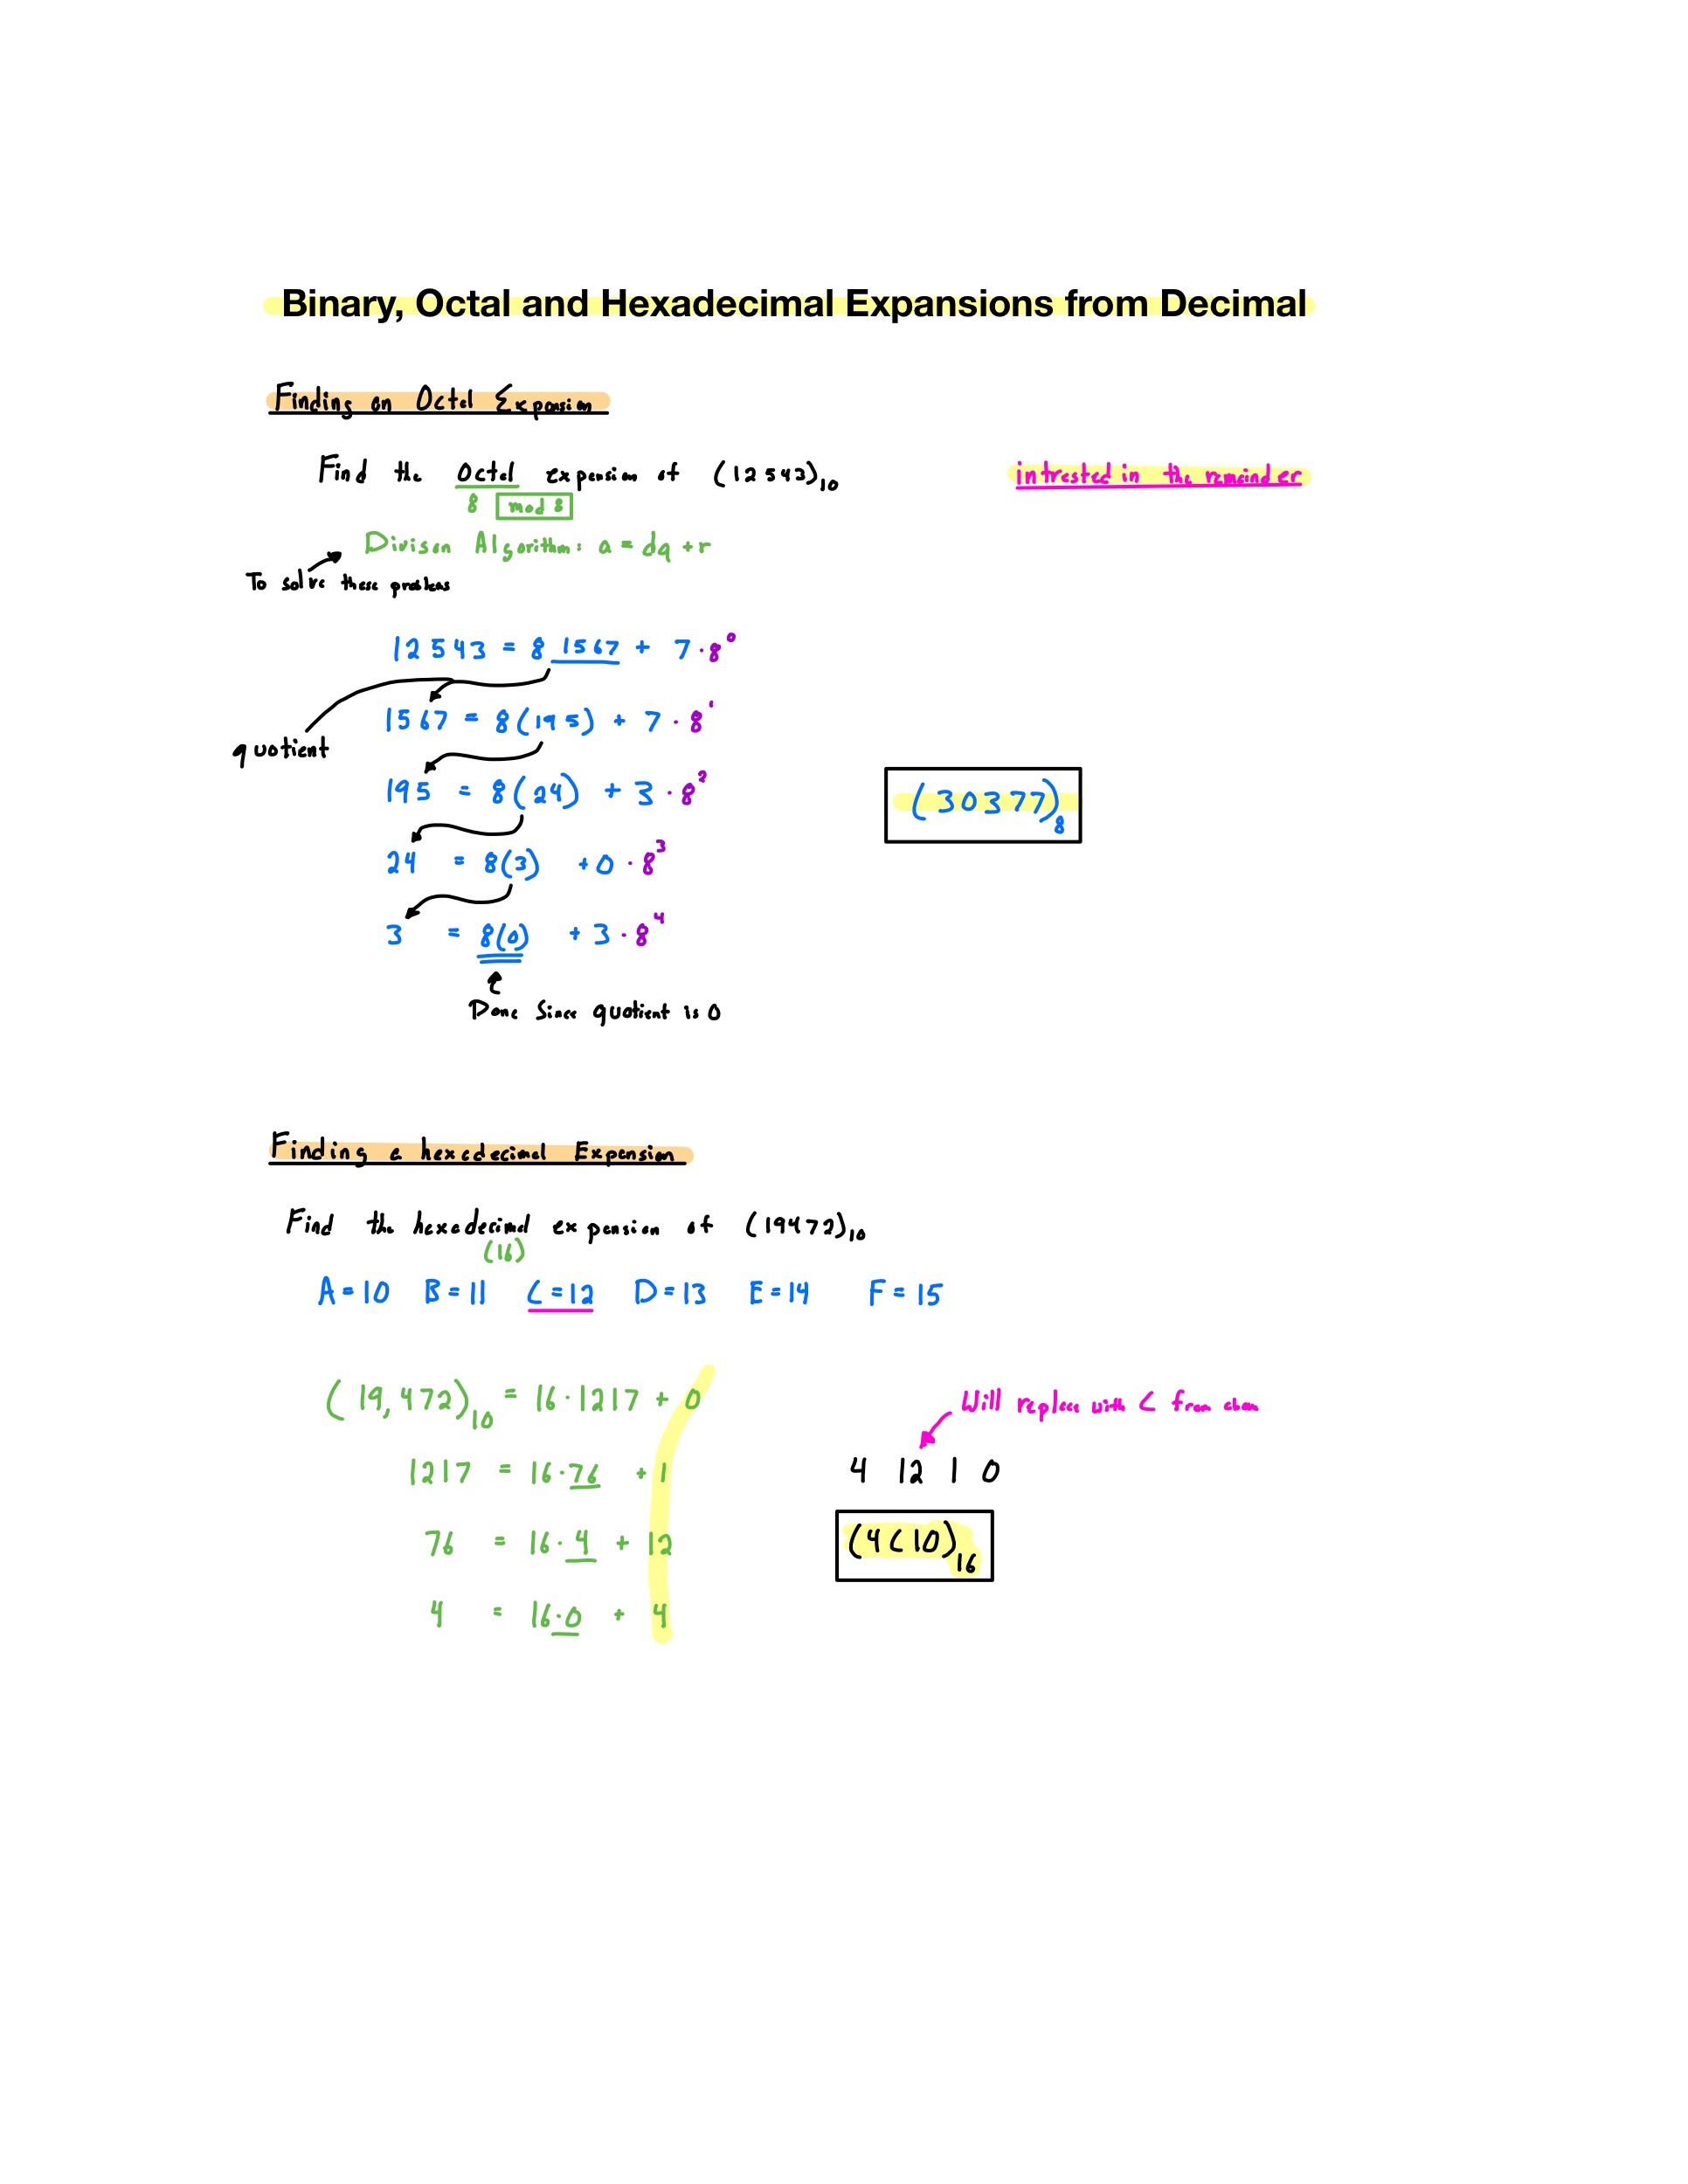 Binary, Octal and Hexadecimal Expansions from Decimal
Finding an Octal Expansion
Find the Octal expansion of (12543)₁₀
intrested in the remainder
8 mod 8
Divison Algorithm: a = dq + r
To solve these problems
12543 = 8 1567 + 7 · 8⁰
1567 = 8(195) + 7 · 8¹
quotient
195 = 8(24) + 3 · 8²
(30377)₈
24 = 8(3) + 0 · 8³
3 = 8(0) + 3 · 8⁴
Done Since quotient is 0
Finding a hexadecimal Expansion
Find the hexadecimal expansion of (19472)₁₀
(16)
A = 10 B = 11 C = 12 D = 13 E = 14 F = 15
(19,472)₁₀ = 16 · 1217 + 0
Will replace with C from
1217 = 16 · 76 + 1
4 12 1 0
76 = 16 · 4 + 12
(4C10)₁₆
4 = 16 · 0 + 4